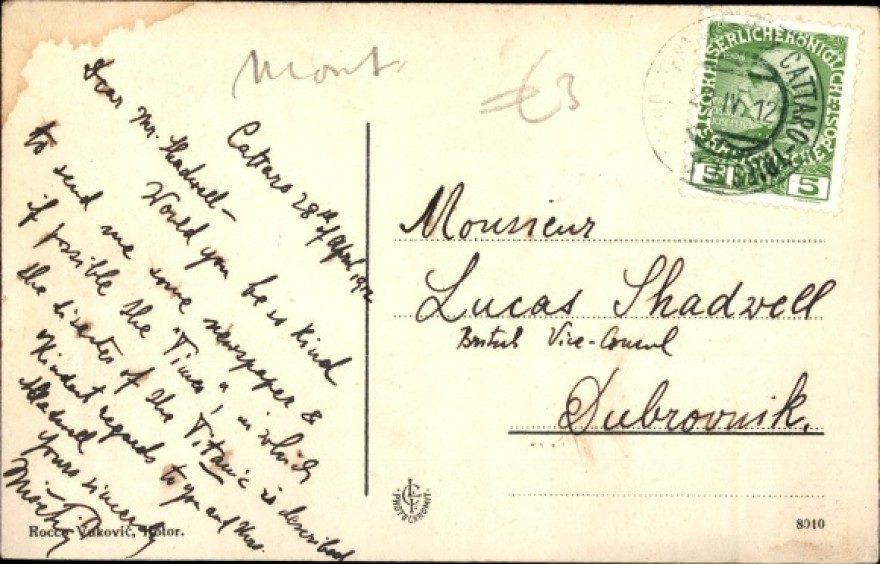 Mont.
€3
KAISERLICHEKÖNIGLICHE
CATTARO
IV. 12
5 5
Cattaro 28th of April 1912
Dear Mr. Shadwell-
Would you be so kind
to send me some newspaper &
if possible the "Times", in which
the disaster of the Titanic is described
Kindest regards to you and Mrs.
Shadwell
Yours sincerely
Monsieur
Lucas Shadwell
British Vice-Consul
Dubrovnik.
PHOTOCHROMIT
Rocco Vuković, Kotor.
8010